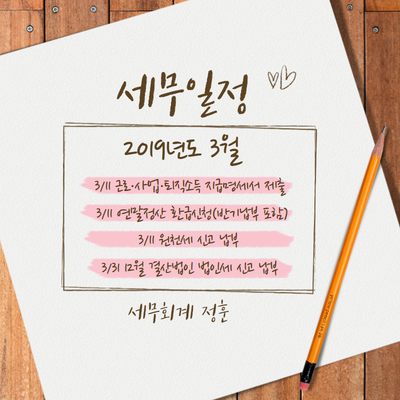 세무일정
2019년도 3월
3/11 근로·사업·퇴직소득 지급명세서 제출
3/11 연말정산 환급신청(반기납부 포함)
3/11 원천세 신고 납부
3/31 12월 결산법인 법인세 신고 납부
세무회계 정훈